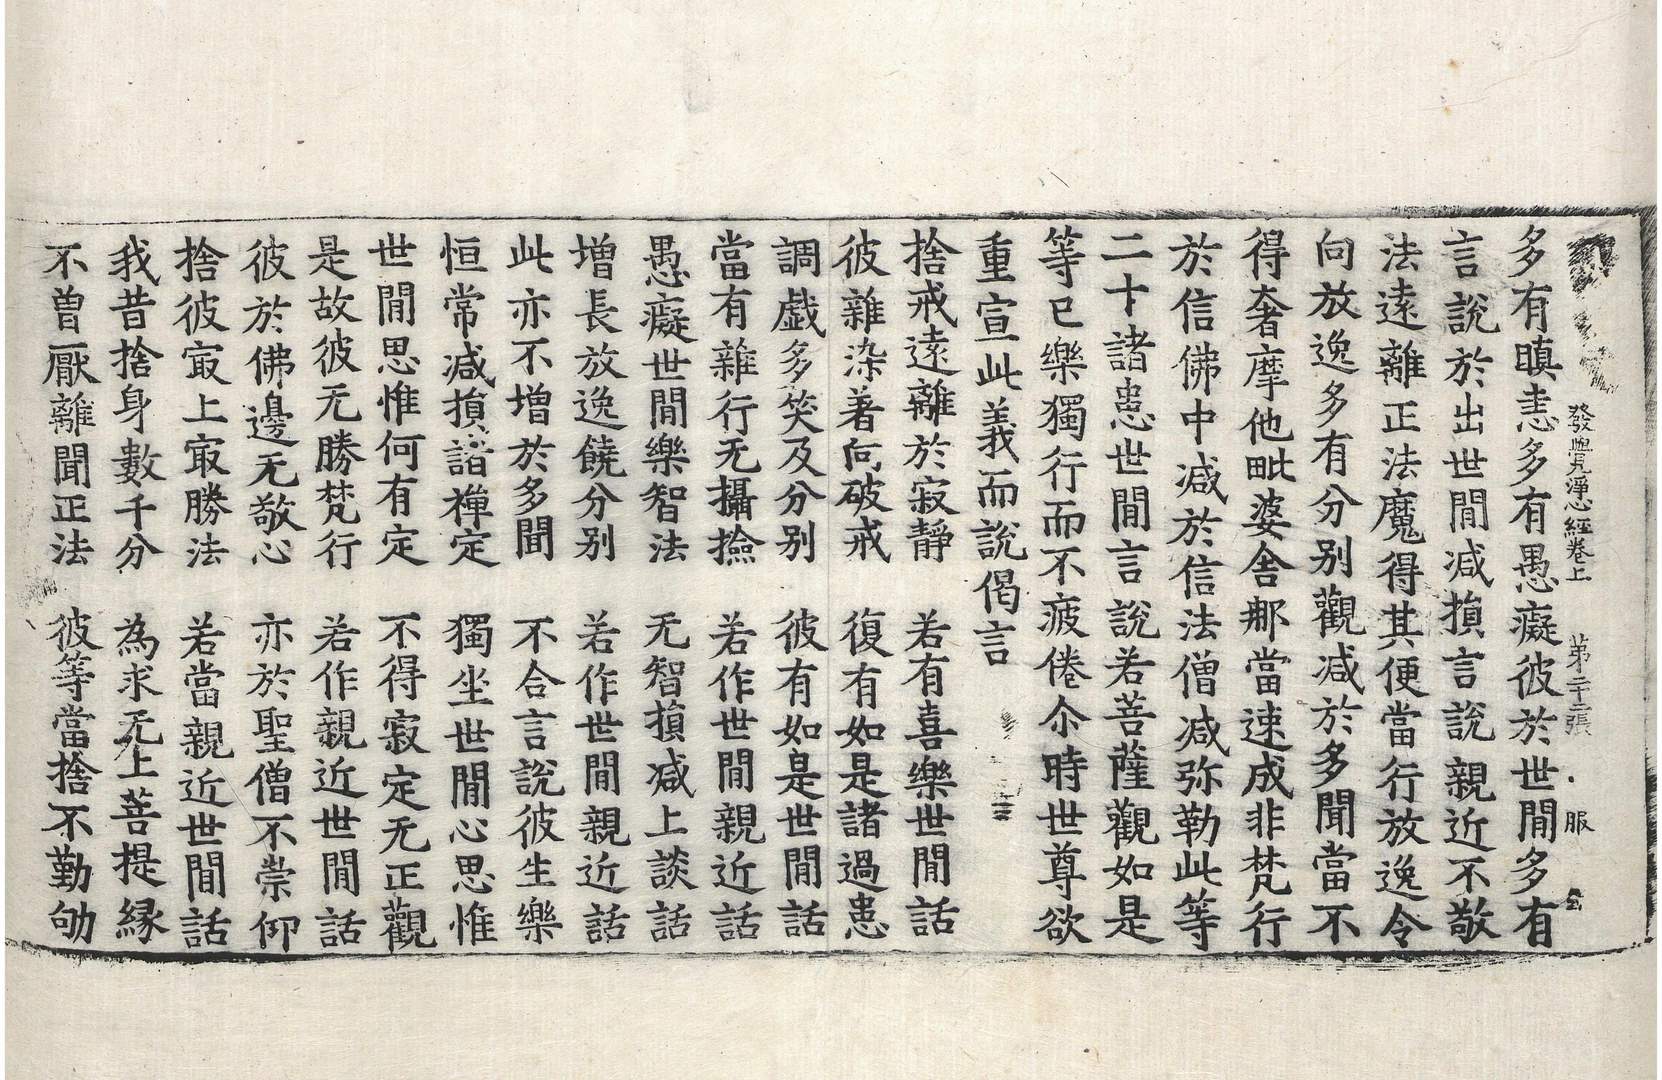 發覺淨心經卷上 第二十二張 服
多有瞋恚多有愚癡彼於世間多有
言說於出世間減損言說親近不敬
法遠離正法魔得其便當行放逸令
向放逸多有分别觀减於多聞當不
得奢摩他毗婆舍那當速成非梵行
於信佛中减於信法僧减弥勒此等
二十諸患世間言說若菩薩觀如是
等已樂獨行而不疲倦尒時世尊欲
重宣此義而說偈言
捨戒遠離於寂靜 若有喜樂世間話
彼雜染著向破戒 復有如是諸過患
調戯多笑及分别 彼有如是世間話
當有雜行无攝撿 若作世間親近話
愚癡世間樂智法 无智損减上談話
增長放逸饒分别 若作世間親近話
此亦不增於多聞 不合言說彼生樂
恒常减損諸禪定 獨坐世間心思惟
世間思惟何有定 不得寂定无正觀
是故彼无勝梵行 若作親近世間話
彼於佛邊无敬心 亦於聖僧不崇仰
捨彼㝡上㝡勝法 若當親近世間話
我昔捨身數千分 為求无上菩提縁
不曽厭離聞正法 彼等當捨不勤劬